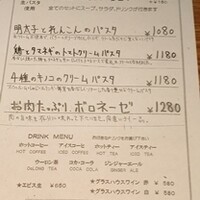 生パスタ
使用
全てのセットにスープ、サラダ、ドリンクが付きます
明太子とれんこんのパスタ ¥1080
鶏とタマネギのトマトクリームパスタ ¥1180
4種のキノコのクリームパスタ ¥1180
お肉たっぷりボロネーゼ ¥1280
DRINK MENU
ホットコーヒー アイスコーヒー ホットティー アイスティー
HOT COFFEE ICED COFFEE HOT TEA ICE TEA
ウーロン茶 コカ・コーラ ジンジャーエール
OOLONG TEA COCA COLA GINGER ALE
★エビス生 ¥680 ★グラスハウスワイン 赤 ¥580
★グラスハウスワイン 白 ¥580